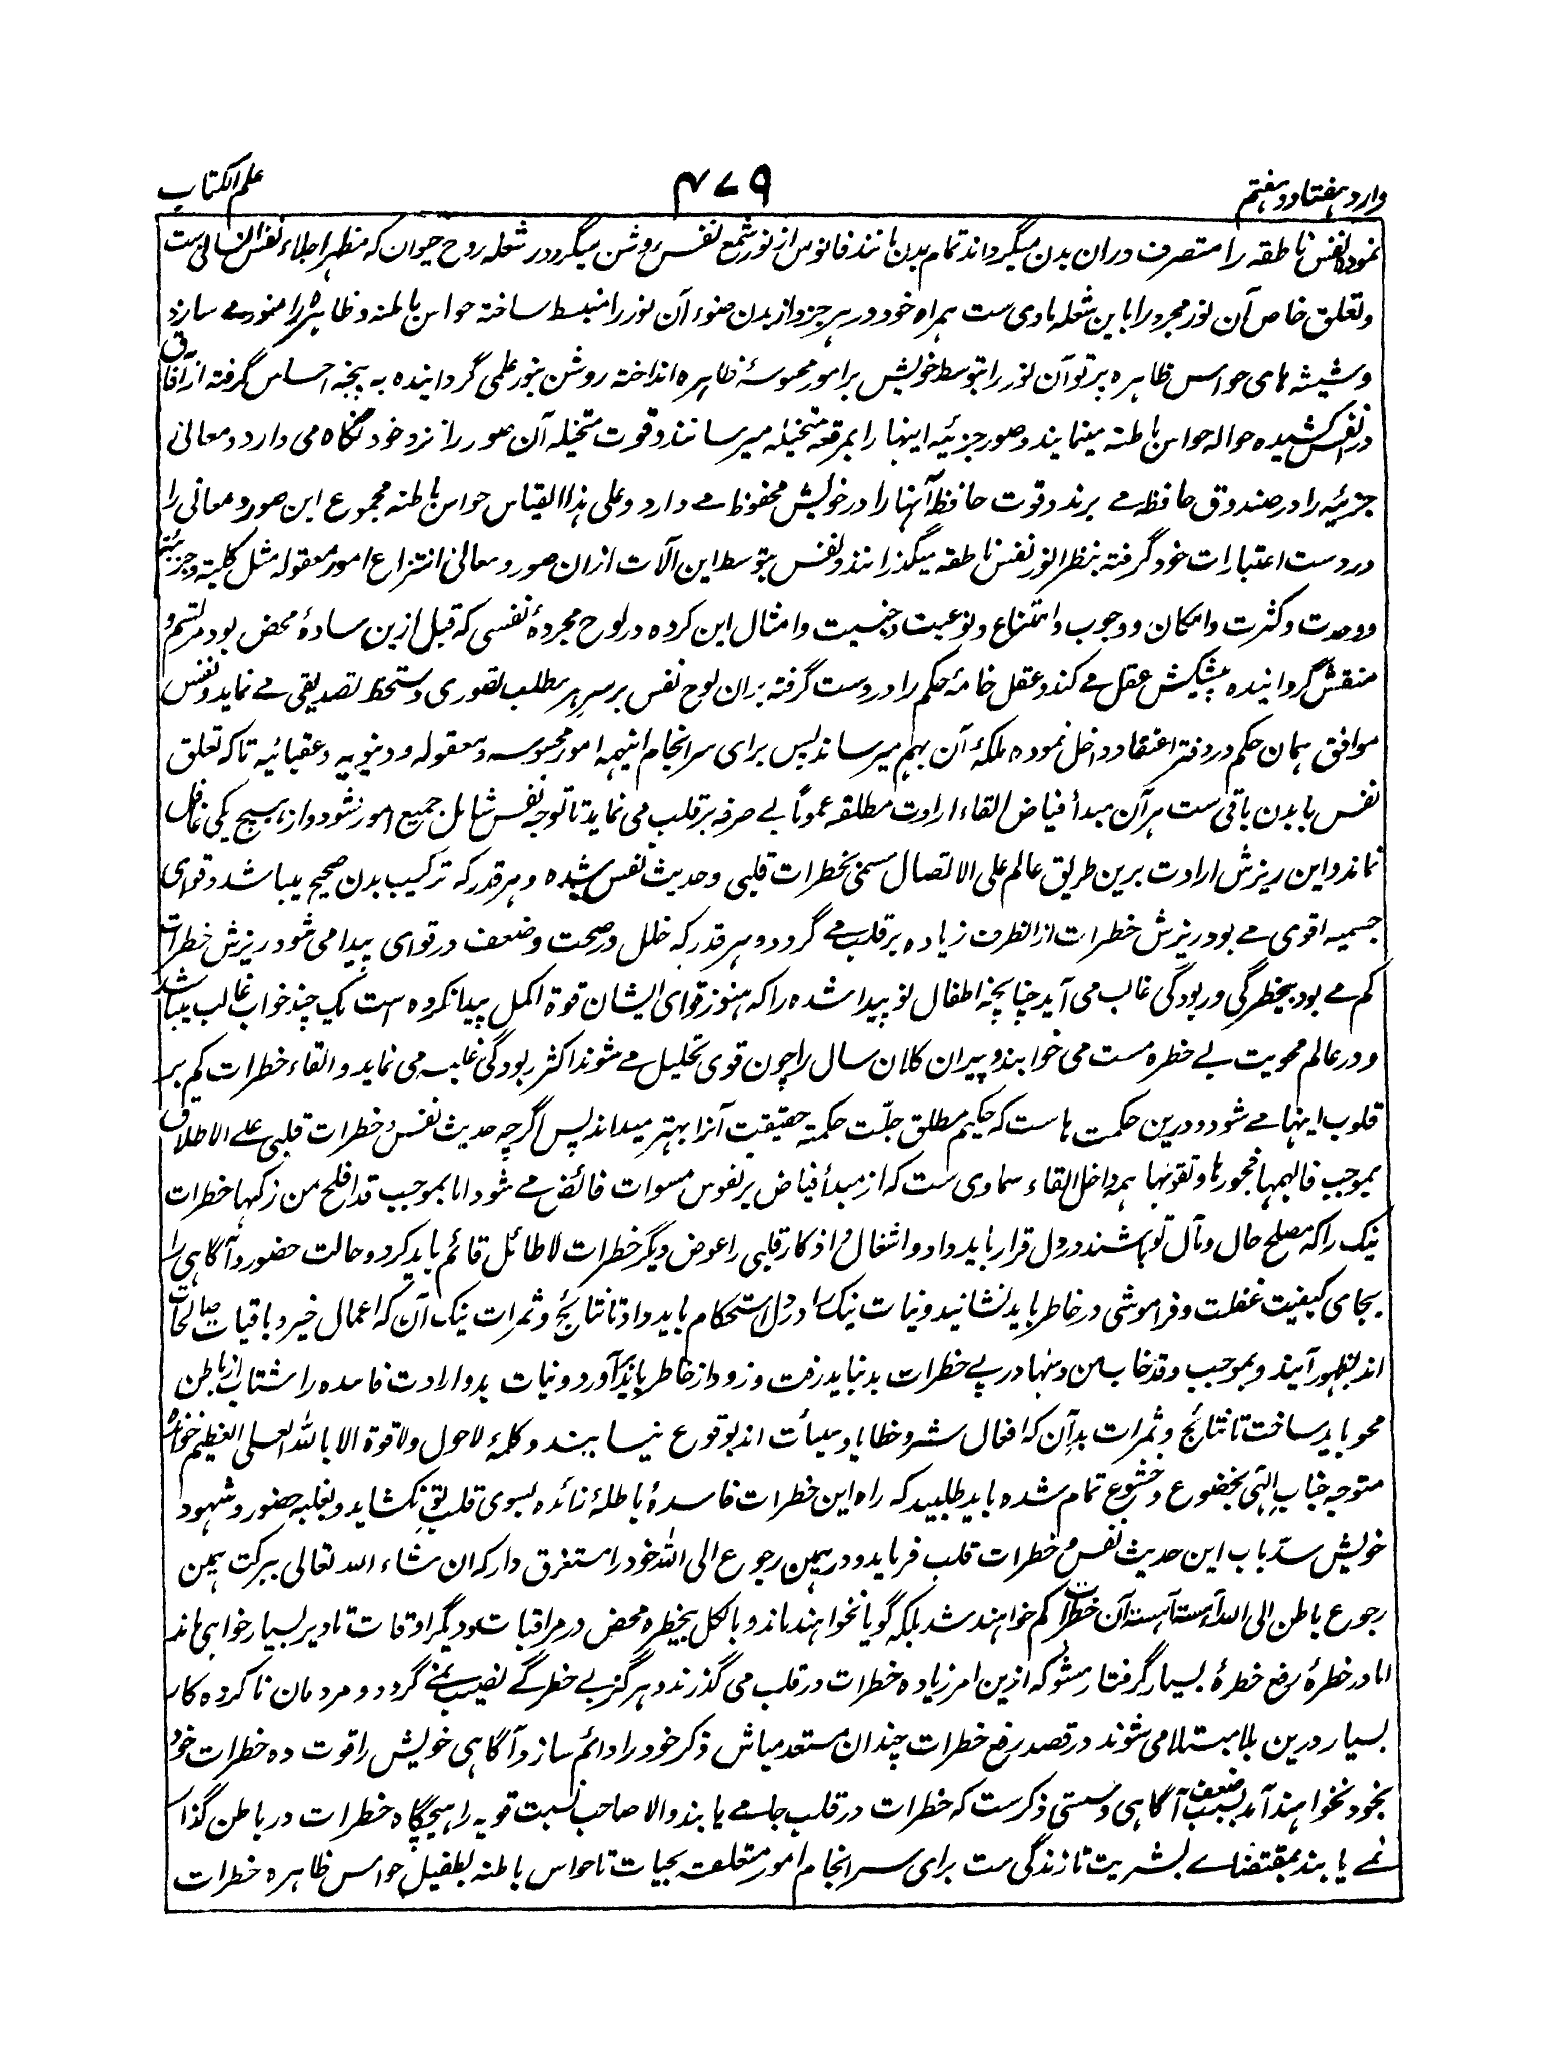 وارد هفتاد و هفتم
۴۷۹
علم الکتاب
نموده نفس ناطقه را متصرف دران بدن میگرداند تمام بدن مانند فانوس از نور شمع نفس روشن میگردد و شعله روح حیوان که مظهر اجلاء نفس انسانی ست
و تعلق خاص آن نور مجرد را باین شعله مادی ست همراه خود در هر جزو از بدن ضوء آن نور را منبسط ساخته حواس باطنه و ظاهره را منور مے سازد
و شیشه های حواس ظاهره پرتو آن نور را بتوسط خویش بر امور محسوسهٔ ظاهره انداخته روشن بنور علمی گردانیده به پنجه احساس گرفته از آفاق
در نفس کشیده حواله حواس باطنه مینمایند و صور جزئیه اینها را بمرقعه متخیله میرسانند و قوت متخیله آن صور را نزد خود نگاه می دارد و معانی
جزئیه را در صندوق حافظه مے برند و قوت حافظه آنها را در خویش محفوظ مے دارد و علی هذا القیاس حواس باطنه مجموع این صور و معانی را
در دست اعتبارات خود گرفته بنظر انور نفس ناطقه میگذرانند و نفس بتوسط این آلات ازان صور و معانی انتزاع امور معقوله مثل کلیته و جزئیته
و وحدت و کثرت و امکان و وجوب و امتناع و نوعیت و جنسیت و امثال این کرده در لوح مجرده نفسی که قبل ازین سادهٔ محض بود مرتسم و
منقش گردانیده پیشکیش عقل مے کند و عقل خامهٔ حکم را در دست گرفته بران لوح نفس بر سر هر مطلب تصوری دستخط تصدیقی مے نماید و نفس
موافق همان حکم در دفتر اعتقاد داخل نموده ملکهٔ آن بهم میرساند پس برای سر انجام اینهمه امور محسوسه و معقوله و دنیویه و عقبائیه تا که تعلق
نفس با بدن باقی ست هر آن مبدأ فیاض القاء ارادت مطلقه عموماً بے صرفه بر قلب می نماید تا توجه نفس شامل جمیع امور شود و از هیچ یکی غافل
نماند و این ریزش ارادت برین طریق عالم علی الاتصال مسمیٰ بخطرات قلبی و حدیث نفس شده و هر قدر که ترکیب بدن صحیح میباشد و قوای
جسمیه اقوی مے بود ریزش خطرات ازانطرف زیاده بر قلب مے گردد و هر قدر که خلل در صحت و ضعف در قوای پیدا می شود ریزش خطرات
کم مے بود بیخطرگی و ربودگی غالب می آید چنانچه اطفال نو پیدا شده را که هنوز قوای ایشان قوة اکمل پیدا نکرده است یک چند خواب غالب میباشد
و در عالم محویت بے خطره مست می خوابند و پیران کلان سال را چون قوی تحلیل مے شوند اکثر ربودگی غلبه می نماید و القاء خطرات کم بر
قلوب اینها مے شود و درین حکمت هاست که حکیم مطلق جلّت حکمته حقیقت آنرا بهتر میداند پس اگرچه حدیث نفس و خطرات قلبی علے الاطلاق
بموجب فالهمها فجورها و تقوٰىها همه داخل القاء سماوی ست که از مبدأ فیاض بر نفوس مسوات فائض مے شود اما بموجب قد افلح من زکٰها خطرات
نیک را که مصلح حال و مآل تو باشند در دل قرار باید داد و اشغال و اذکار قلبی را عوض دیگر خطرات لاطائل قائم باید کرد و حالت حضور و آگاهی را
بجای کیفیت غفلت و فراموشی در خاطر باید نشانید و نیات نیک را در دل استحکام باید داد تا نتایج و ثمرات نیک آن که اعمال خیر و باقیات صالحات
اند بظهور آیند و بموجب و قد خاب من دسّٰها در پے خطرات بد نباید رفت و زود از خاطر باید برآورد و نیات بد و ارادت فاسده را شتاب از باطن
محو باید ساخت تا نتایج و ثمرات بد آن که افعال شر و خطایا و سیئات اند بوقوع نیایند و کلمهٔ لاحول ولاقوة الا بالله العلی العظیم خوانده
متوجه جناب الٰهی بخضوع و خشوع تمام شده باید طلبید که راه این خطرات فاسدهٔ باطلهٔ زائده بسوی قلب تو نکشاید و بغلبه حضور و شهود
خویش سدّ باب این حدیث نفس و خطرات قلب فرماید و در همین رجوع الی الله خود را مستغرق دار که ان شاء الله تعالی ببرکت همین
رجوع باطن الی الله آهسته آهسته آن خطرات کم خواهند شد بلکه گویا نخواهند ماند و بالکل بیخطره محض در مراقبات و دیگر اوقات تا دیر بسیار خواهی ماند
اما در خطرهٔ رفع خطرهٔ بسیار گرفتار مشو که ازین امر زیاده خطرات در قلب می گذرند و هرگز بے خطرگے نصیب نمے گردد و مردمان ناکرده کار
بسیار درین بلا مبتلا می شوند در قصد رفع خطرات چندان مستعد مباش ذکر خود را دائم ساز و آگاهی خویش را قوت ده خطرات خود
بخود نخواهند آمد بسبب ضعف آگاهی و سستی ذکر ست که خطرات در قلب جا مے یابند والا صاحب نسبت قویه را هیچگاه خطرات در باطن گذار
نمے یابند بمقتضاے بشریت تا زندگی ست برای سر انجام امور متعلقه بحیات تا حواس باطنه بطفیل حواس ظاهره خطرات